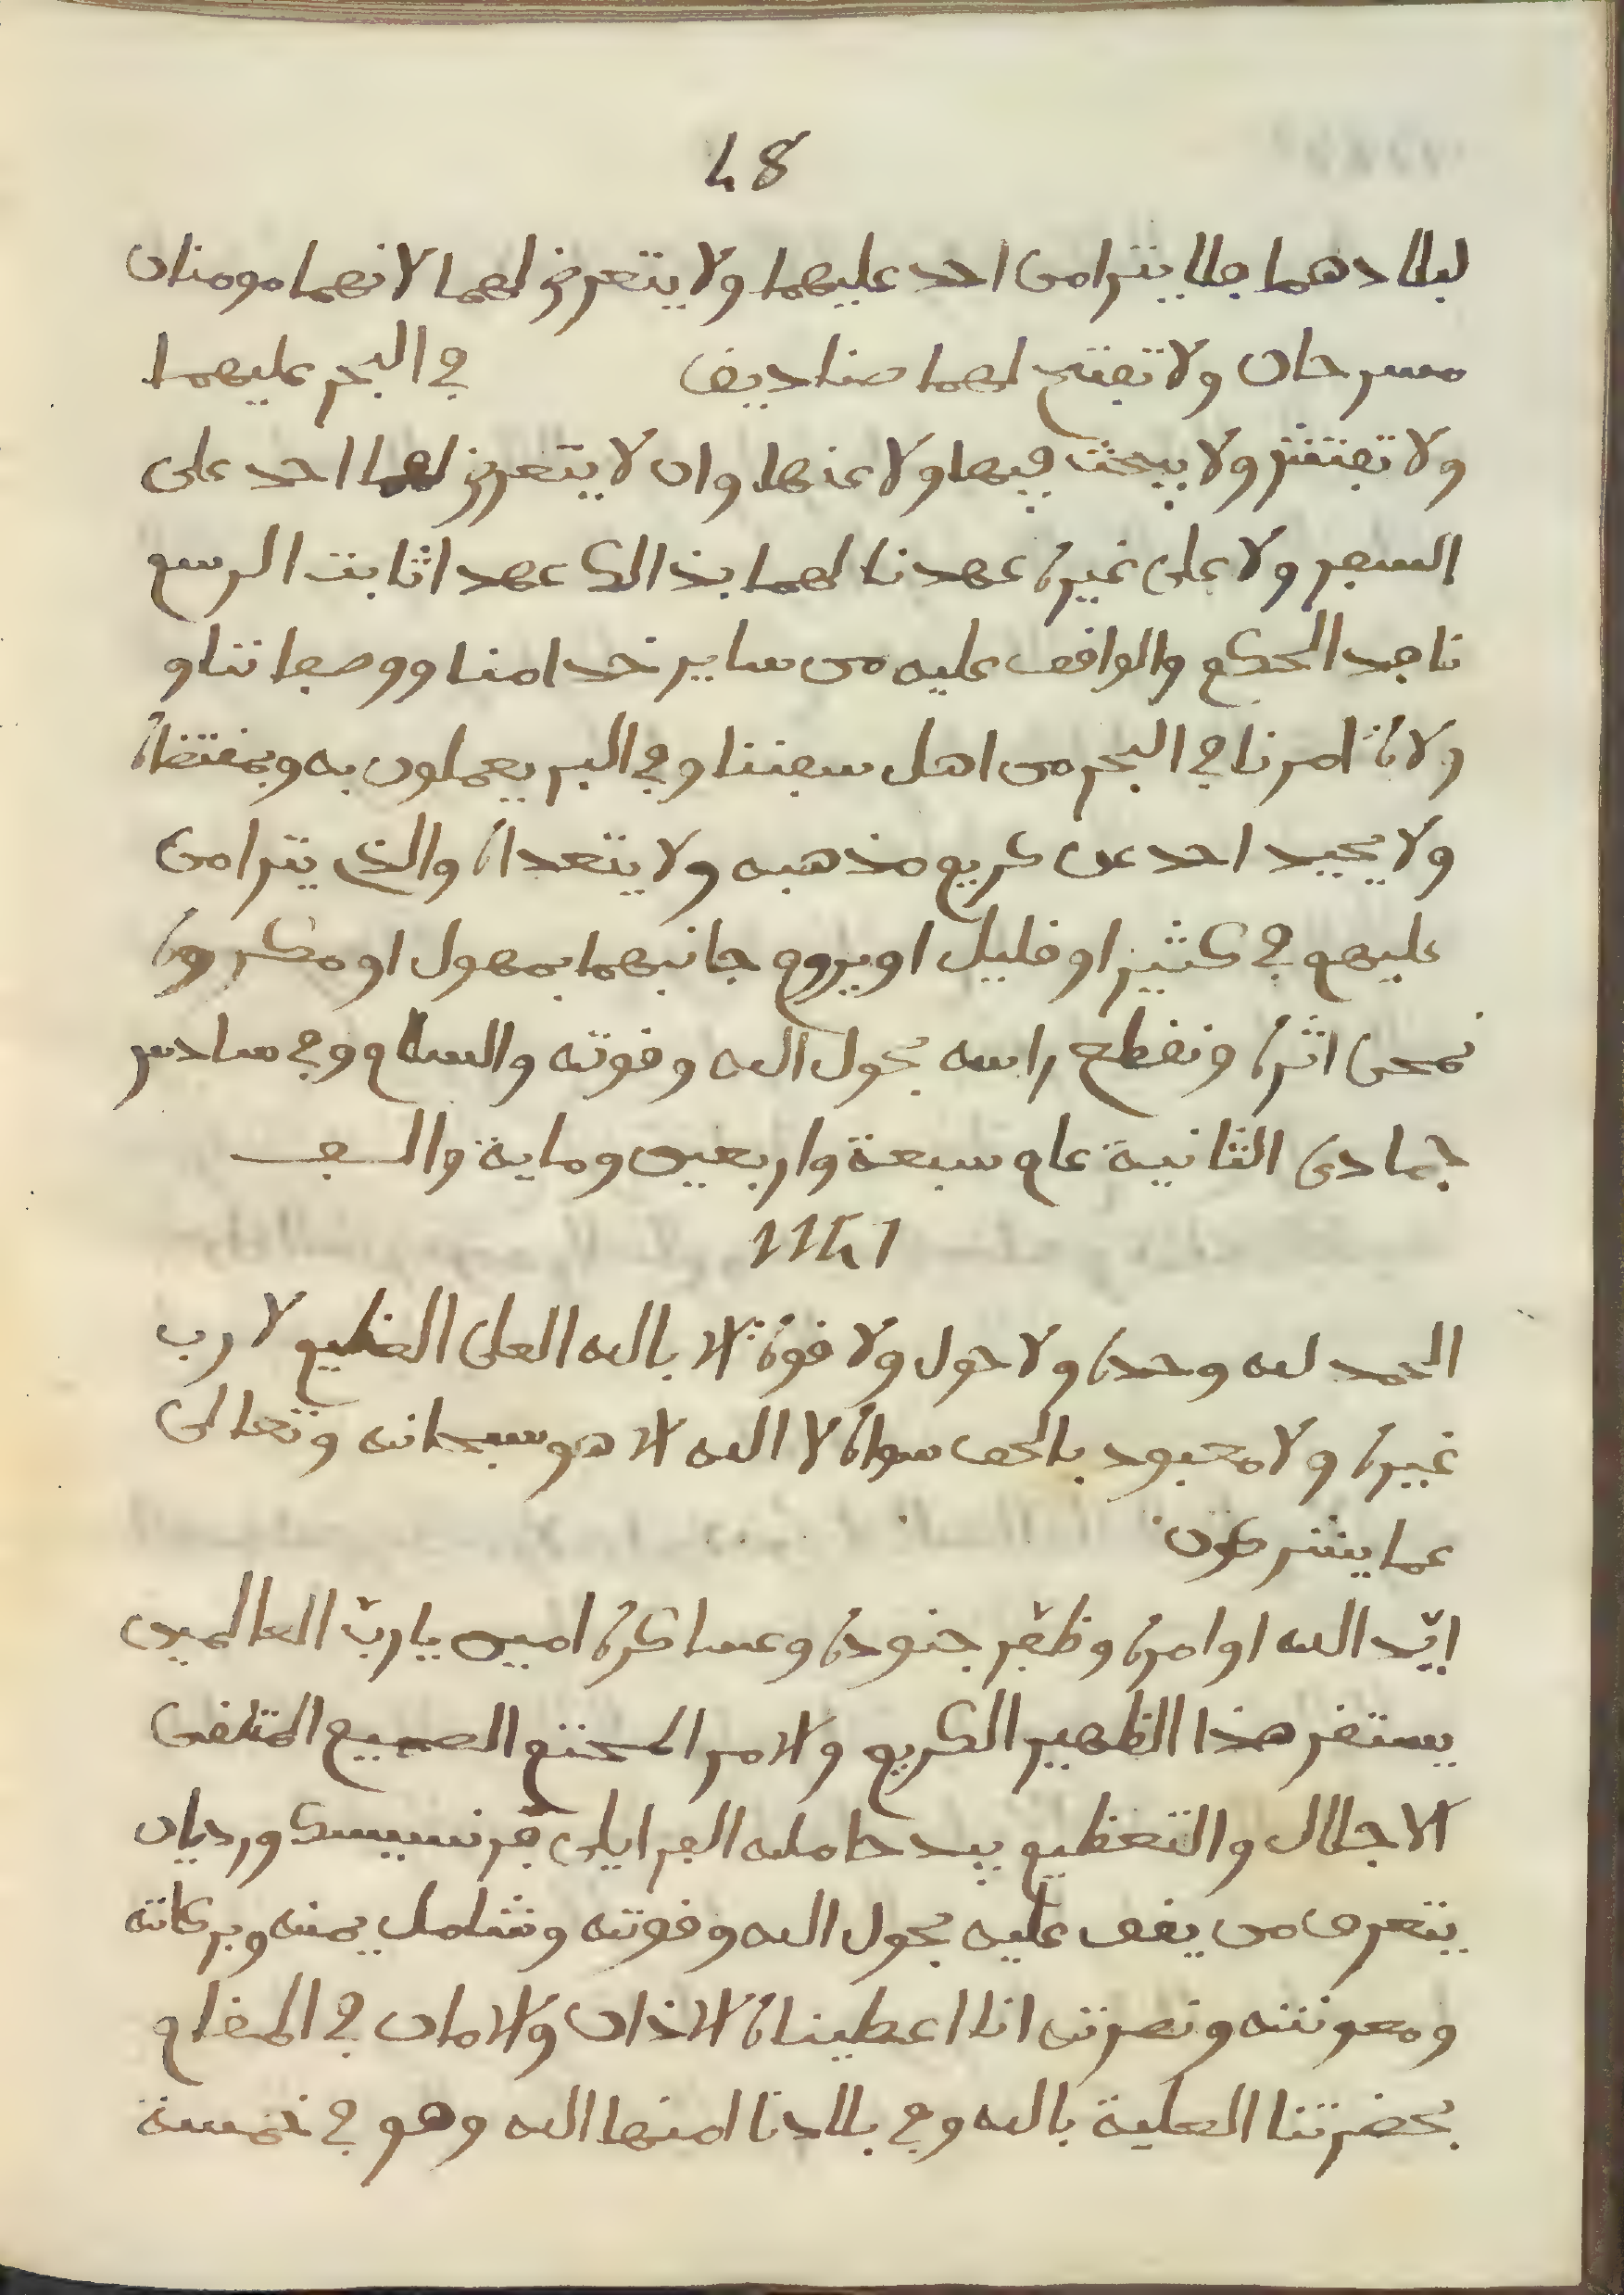 48
لبلادهما فلا يترامى احد عليهما ولا يتعرض لهما لانهما مومنان
مسرحان ولا تفتح لهما صناديق في البحر عليهما
ولا تفتش ولا يبحث فيها ولا عنها وان لا يتعرض لهما احد على
السفر ولا على غيره عهدنا لهما بذالك عهدا ثابت الرسم
نافد الحكم والواقف عليه من ساير خدامنا ووصفاننا و
ولاة امرنا في البحر من اهل سفننا وفي البر يعملون به وبمقتضاه
ولا يحيد احد عن كريم مذهبه ولا يتعداه والذي يترامى
عليهم في كثير او قليل او يروم جانبهما بمهول او مكروه
نمحى اثره ونقطع راسه بحول الله وقوته والسلام وفي سادس
جمادى الثانية عام سبعة واربعين وماية والف
1147
الحمد لله وحده ولا حول ولا قوة الا بالله العلى العظيم لا رب
غيره ولا معبود بالحق سواه لا اله الا هو سبحانه وتعالى
عما يشركون
ايّد الله اوامره وظفّر جنوده وعساكره امين يا ربّ العالمين
يستقر هذا الظهير الكريم والامر المحتم الصميم المتلقى
الاجلال والتعظيم بيد حامله الفرايلى فرنسيسك ورديان
يتعرف من يقف عليه بحول الله وقوته وشامل يمنه وبركاته
ومعونته ونصرته اننا اعطيناه الاذان والامان في المقام
بحضرتنا العلية بالله وفي بلادنا امنها الله وهو في خمسة